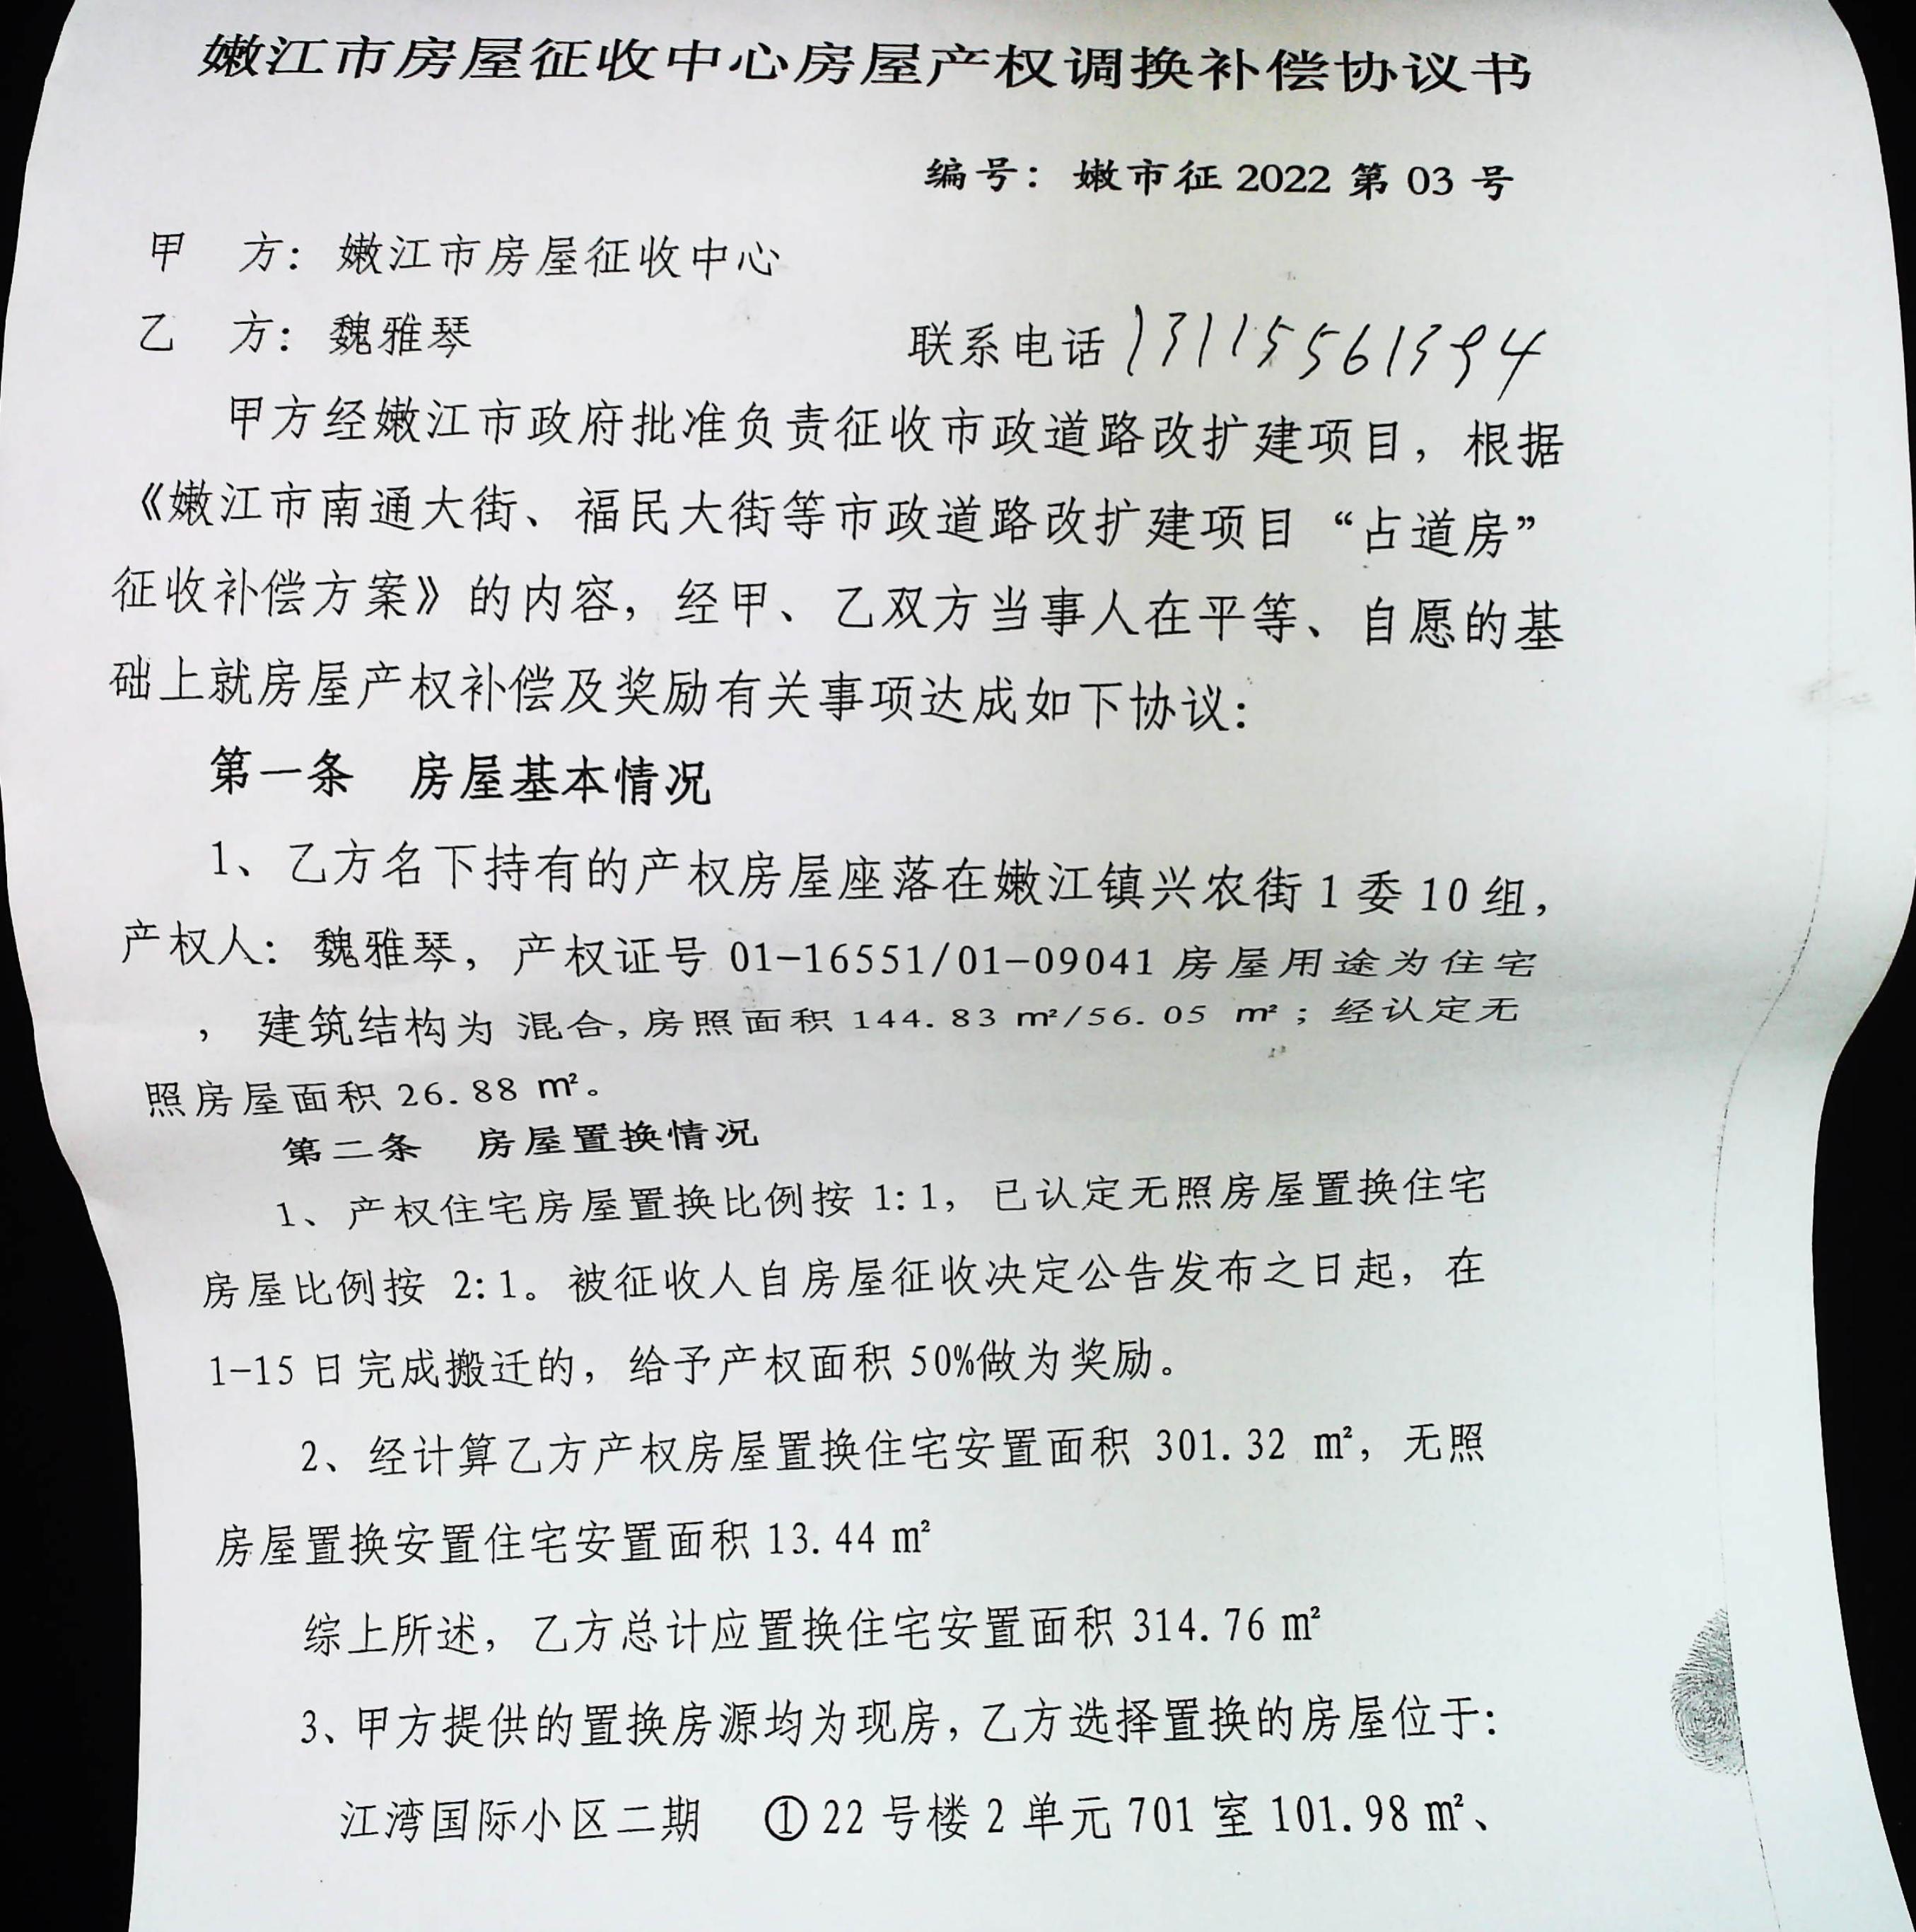 嫩江市房屋征收中心房屋产权调换补偿协议书
编号：嫩市征 2022 第 03 号
甲　方：嫩江市房屋征收中心
乙　方：魏雅琴　联系电话 13115561394
甲方经嫩江市政府批准负责征收市政道路改扩建项目，根据
《嫩江市南通大街、福民大街等市政道路改扩建项目“占道房”
征收补偿方案》的内容，经甲、乙双方当事人在平等、自愿的基
础上就房屋产权补偿及奖励有关事项达成如下协议：
第一条　房屋基本情况
1、乙方名下持有的产权房屋座落在嫩江镇兴农街 1 委 10 组，
产权人：魏雅琴，产权证号 01-16551/01-09041 房屋用途为住宅
，建筑结构为 混合，房照面积 144.83 m²/56.05 m²；经认定无
照房屋面积 26.88 m²。
第二条　房屋置换情况
1、产权住宅房屋置换比例按 1:1，已认定无照房屋置换住宅
房屋比例按 2:1。被征收人自房屋征收决定公告发布之日起，在
1-15 日完成搬迁的，给予产权面积 50%做为奖励。
2、经计算乙方产权房屋置换住宅安置面积 301.32 m²，无照
房屋置换安置住宅安置面积 13.44 m²
综上所述，乙方总计应置换住宅安置面积 314.76 m²
3、甲方提供的置换房源均为现房，乙方选择置换的房屋位于：
江湾国际小区二期　①22 号楼 2 单元 701 室 101.98 m²、